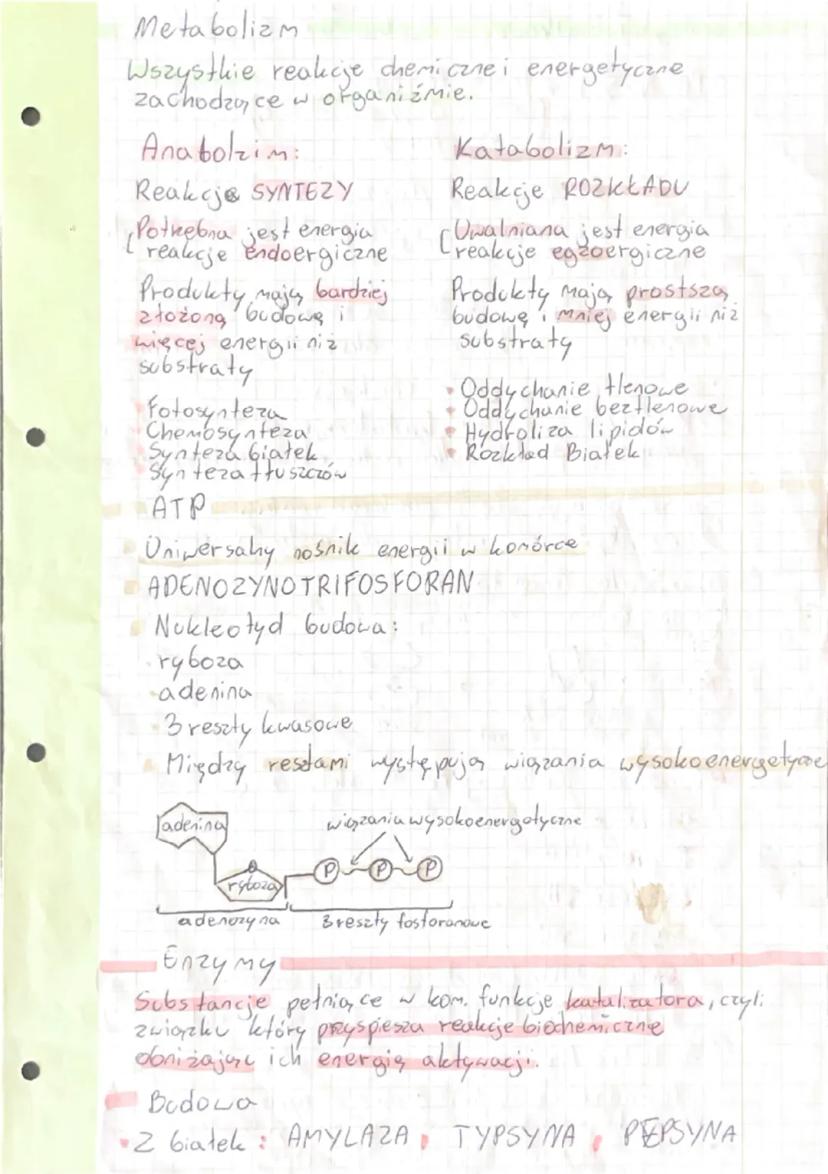 Metabolizm
Wszystkie reakcje chemiczne i energetyczne
zachodzące w organiźmie.
Anabolzim:
Reakcje SYNTEZY
Potrzebna jest energia
reakcje endoergiczne
Produkty mają bardziej
złożoną budowę i
więcej energii niż
substraty
Fotosynteza
Chemosynteza
Synteza białek
Synteza tłuszczów
Katabolizm:
Reakcje ROZKŁADU
Uwalniana jest energia
reakcje egzoergiczne
Produkty mają prostszą
budowę i mniej energii niż
substraty
Oddychanie tlenowe
Oddychanie beztlenowe
Hydroliza lipidów
Rozkład Białek
ATP
Uniwersalny nośnik energii w komórce
ADENOZYNOTRIFOSFORAN
Nukleotyd budowa:
ryboza
adenina
3 reszty kwasowe
Między resztami występują wiązania wysokoenergetyczne
adenina
wiązania wysokoenergetyczne
ryboza
P P P
adenozyna
3 reszty fosforanowe
Enzymy
Substancje pełniące w kom. funkcje katalizatora, czyli
związku który przyspiesza reakcje biochemiczne
obniżając ich energię aktywacji.
Budowa
Z białek: AMYLAZA, TYPSYNA, PEPSYNA